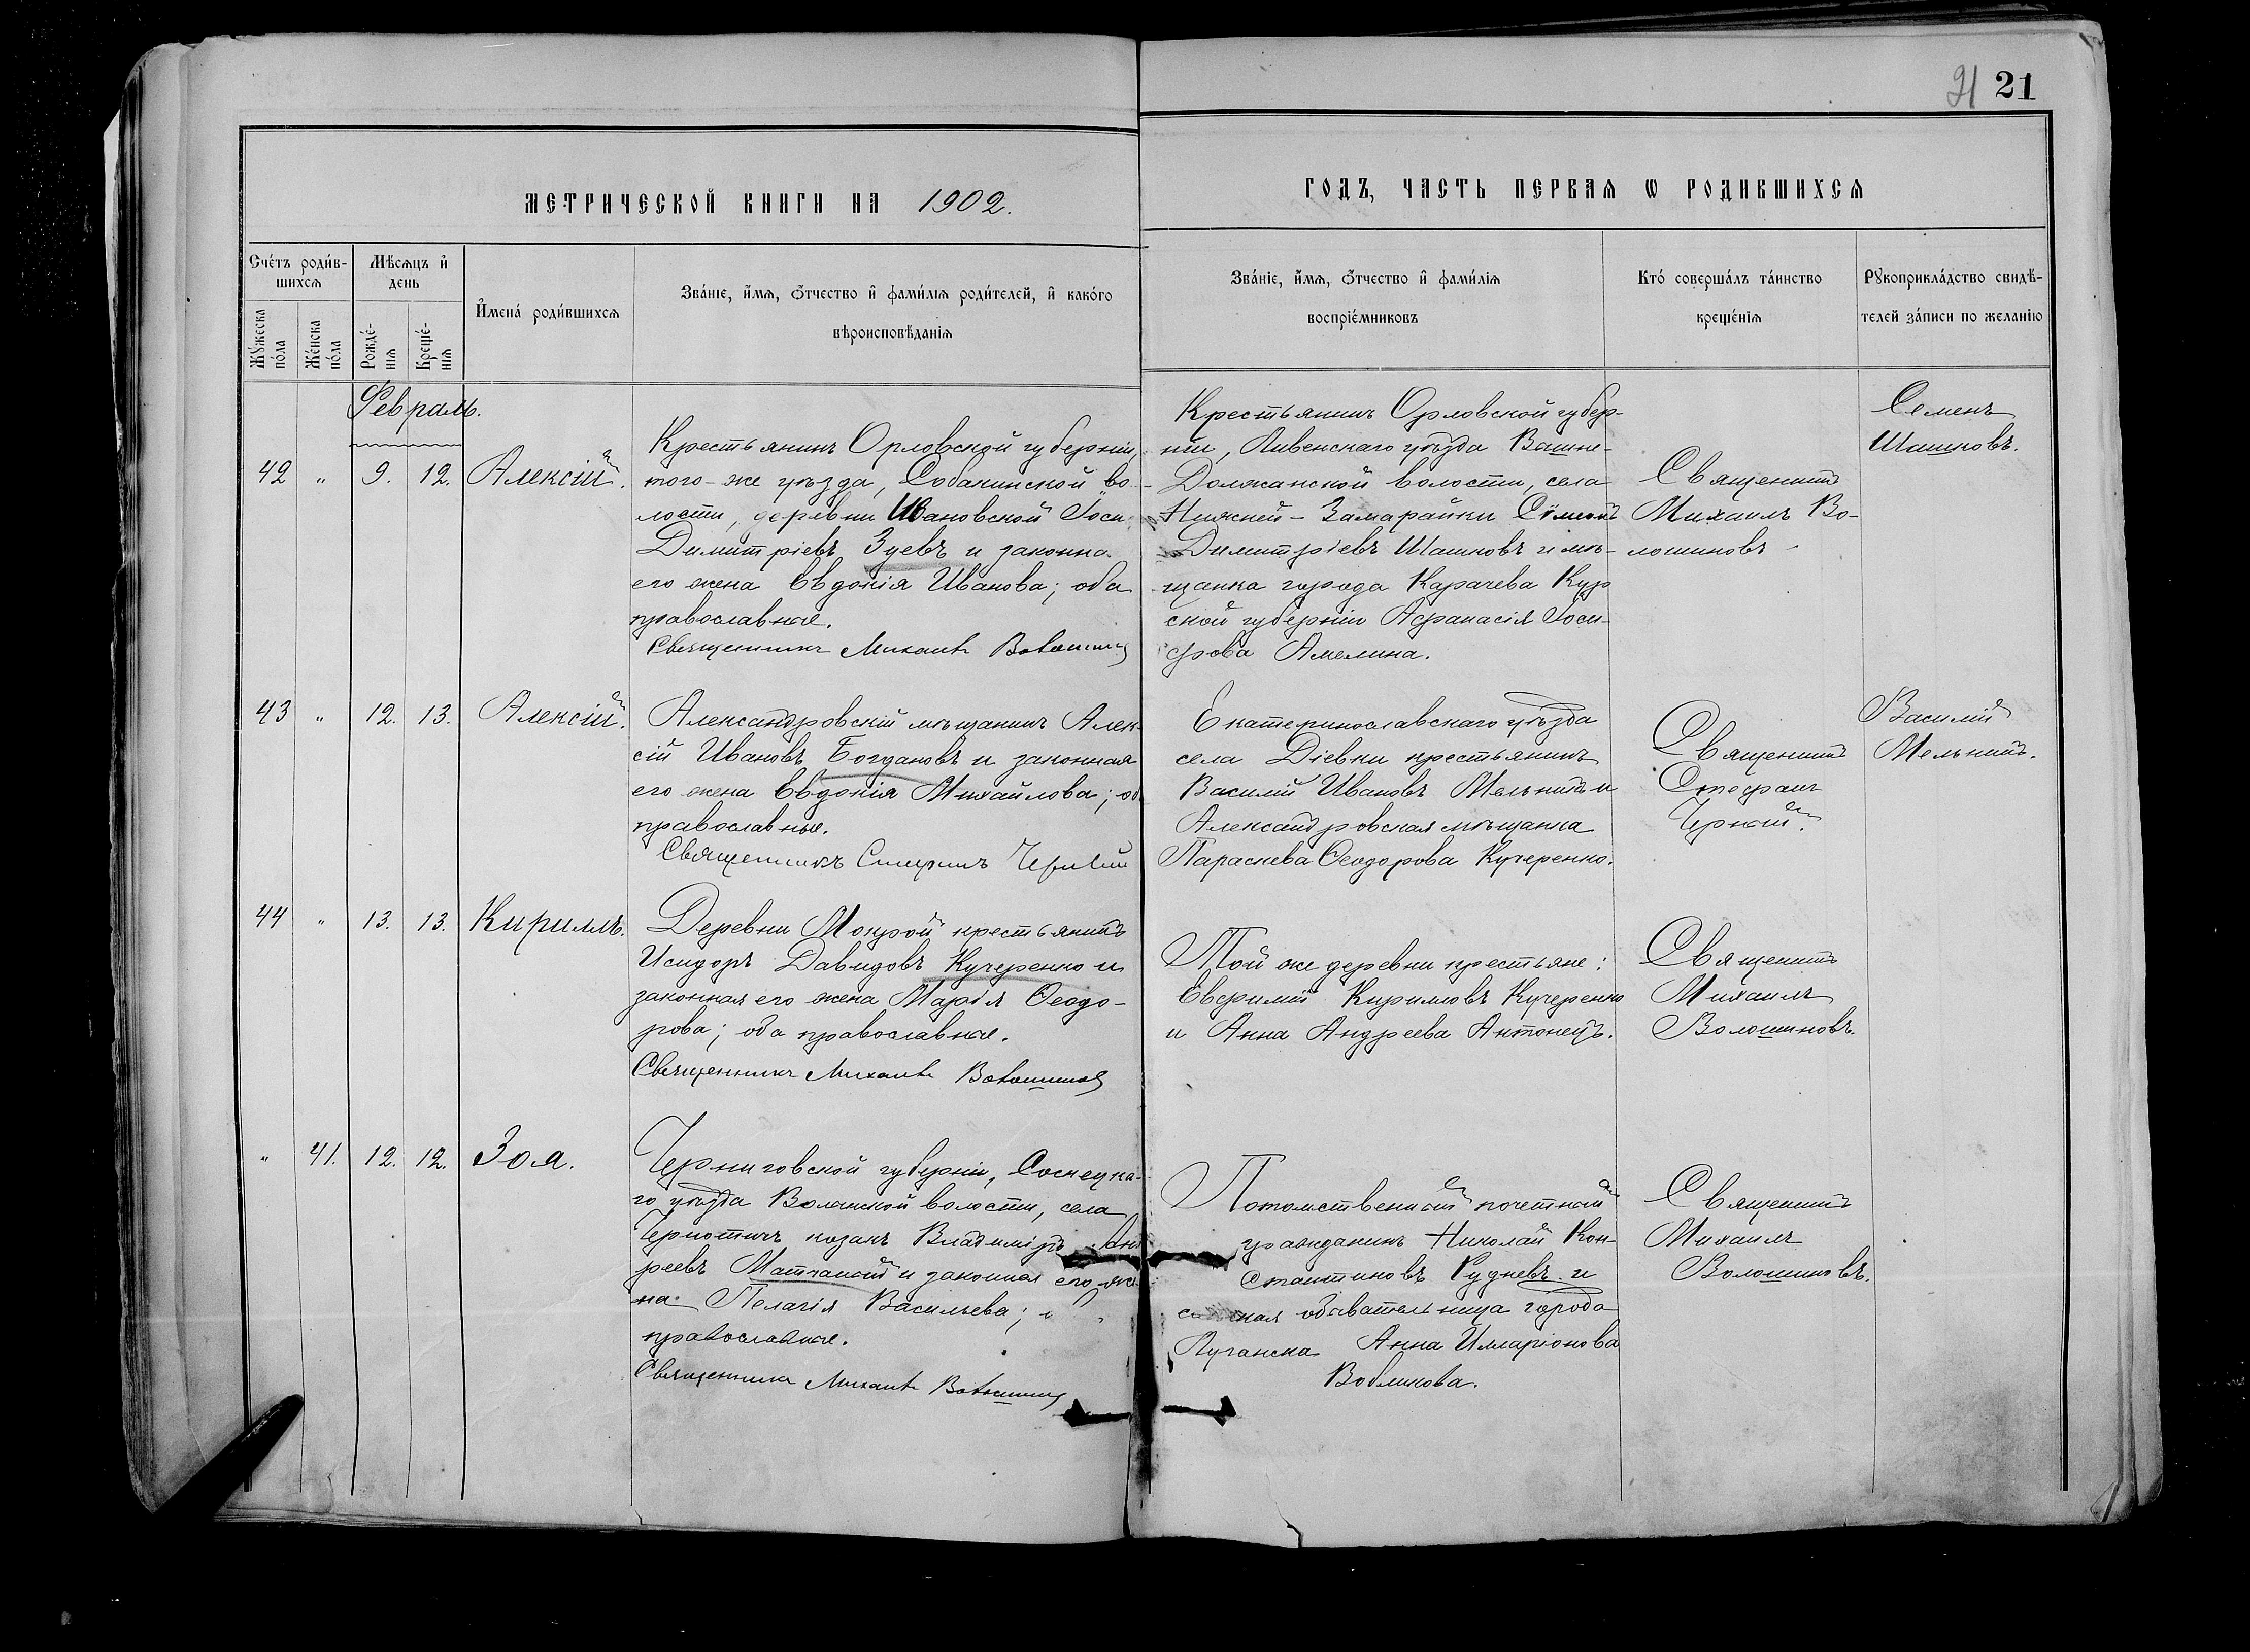 21 21
МЕТРИЧЕСКОЙ КНИГИ НА 1902.
ГОДЪ, ЧАСТЬ ПЕРВАЯ Ѡ РОДИВШИХСЯ
Сче́тъ роди́в-
шихсѧ
Мꙋ́жеска по́ла
Же́нска по́ла
Мѣсѧцъ и҆ день
Рожде́-
нїѧ
Креще́-
нїѧ
И҆мена̀ роди́вшихсѧ
Зва́нїе, и҆́мѧ, ѻ҆́тчество и҆ фами́лїѧ роди́телей, и҆ како́го
вѣроисповѣ́данїѧ
Зва́нїе, и҆́мѧ, ѻ҆́тчество и҆ фами́лїѧ
воспрїе́мниковъ
Кто́ соверша́лъ та́инство
креще́нїѧ
Рꙋкоприкла́дство свидѣ́-
телей за́писи по жела́нїю
Февраль.
42 " 9. 12. Алексій.
Крестьянинъ Орловской губерніи,
того-же уѣзда, Собакинской во-
лости, деревни Ивановской Іоси
Димитріевъ Зуевъ и законна
его жена Евдокія Иванова; оба
православные.
Священникъ Михаилъ Волошинов
Крестьянинъ Орловской губер-
ніи, Ливенскаго уѣзда Вышне-
Должанской волости, села
Нижней-Замарайки Сѵмеонъ
Димитріевъ Шашковъ и мѣ-
щанка города Карачева Кур
ской губерніи Афанасія Іоси-
фова Амелина.
Священникъ
Михаилъ Во-
лошиновъ
Семенъ
Шашковъ.
43 " 12. 13. Алексій.
Александровскій мѣщанинъ Алек-
сій Ивановъ Богдановъ и законная
его жена Евдокія Михайлова; об
православные.
Священникъ Стефанъ Черный
Екатеринославскаго уѣзда
села Діевки крестьянинъ
Василій Ивановъ Мельникъ и
Александровская мѣщанка
Параскева Ѳеодорова Кучеренко.
Священникъ
Стефанъ
Черный.
Василій
Мельникъ.
44 " 13. 13. Кириллъ.
Деревни Мокрой крестьянинъ
Исидоръ Давидовъ Кучеренко и
законная его жена Марія Ѳеодо-
рова; оба православные.
Священникъ Михаилъ Волошинов
Той же деревни крестьяне:
Евфимій Кирилловъ Кучеренко
и Анна Андреева Антонецъ.
Священникъ
Михаилъ
Волошиновъ.
" 41. 12. 12. Зоя.
Черниговской губерніи, Сосницка-
го уѣзда Волынской волости, села
Чернотичъ козакъ Владиміръ Ан
реевъ Матчанскій и законная его же
на Пелагія Васильева;
православные.
Священникъ Михаилъ Волошинов
Потомственный почетный
гражданинъ Николай Кон-
стантиновъ Рудневъ и
обывательница города
Луганска Анна Илларіонова
Вобликова.
Священникъ
Михаилъ
Волошиновъ.